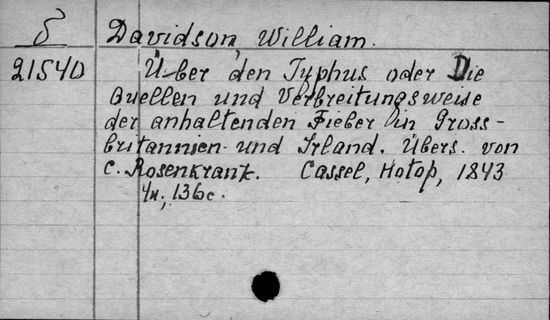 δ Davidson, William.
21540 Über den Typhus oder Die
Quellen und Verbreitungsweise
der anhaltenden Fieber in Gross-
britannien und Irland. Übers. von
C. Rosenkranz. Cassel, Hotop, 1843
4н., 136с.